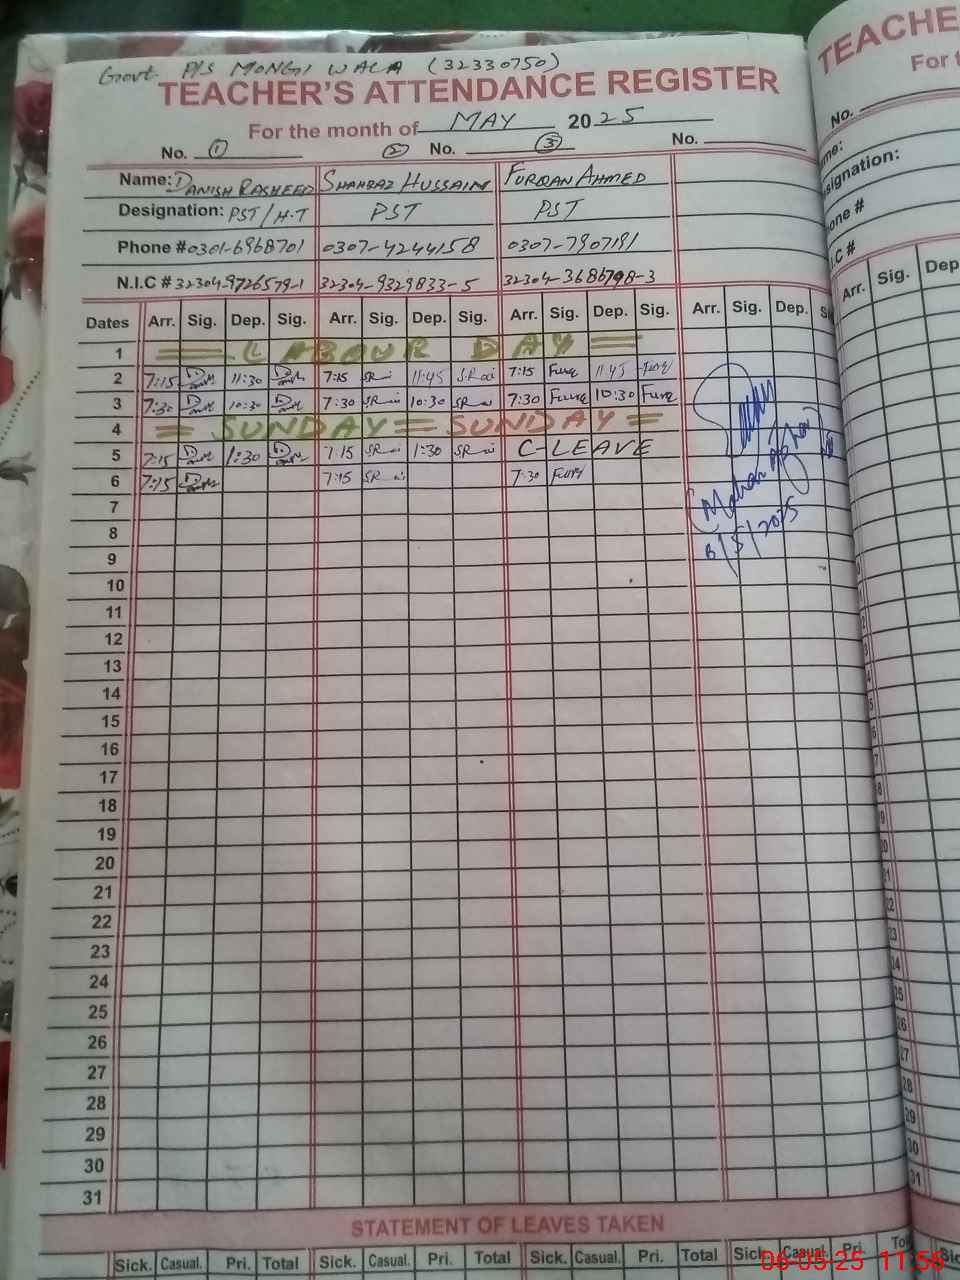 Govt. P/S MONGI WALA (32330750)
TEACHER'S ATTENDANCE REGISTER
For the month of MAY 2025
No. 1 2 No. 3 No.
Name: DANISH RASHEED SHAHBAZ HUSSAIN FURQAN AHMED
Designation: PST/H.T PST PST
Phone # 0301-6968701 0307-4244158 0307-7907191
N.I.C # 32304-9726579-1 32304-9329833-5 32304-3686798-3
Dates Arr. Sig. Dep. Sig. Arr. Sig. Dep. Sig. Arr. Sig. Dep. Sig. Arr. Sig. Dep.
1 = LABOUR DAY =
2 7:15 11:30 7:15 11:45 7:15 Furq 11:45 Furq
3 7:30 10:30 7:30 10:30 7:30 Furq 10:30 Furq
4 = SUNDAY = SUNDAY =
5 7:15 1:30 7:15 1:30 C-LEAVE
6 7:15 7:15 7:30 Furq
7
8
9
10
11
12
13
14
15
16
17
18
19
20
21
22
23
24
25
26
27
28
29
30
31
STATEMENT OF LEAVES TAKEN
Sick. Casual. Pri. Total Sick. Casual. Pri. Total Sick. Casual. Pri. Total Sick. Casual. Pri.
6/5/2025
TEACHE
For t
No.
me:
signation:
one #
I.C #
Arr. Sig. Dep
06-05-25 11:56